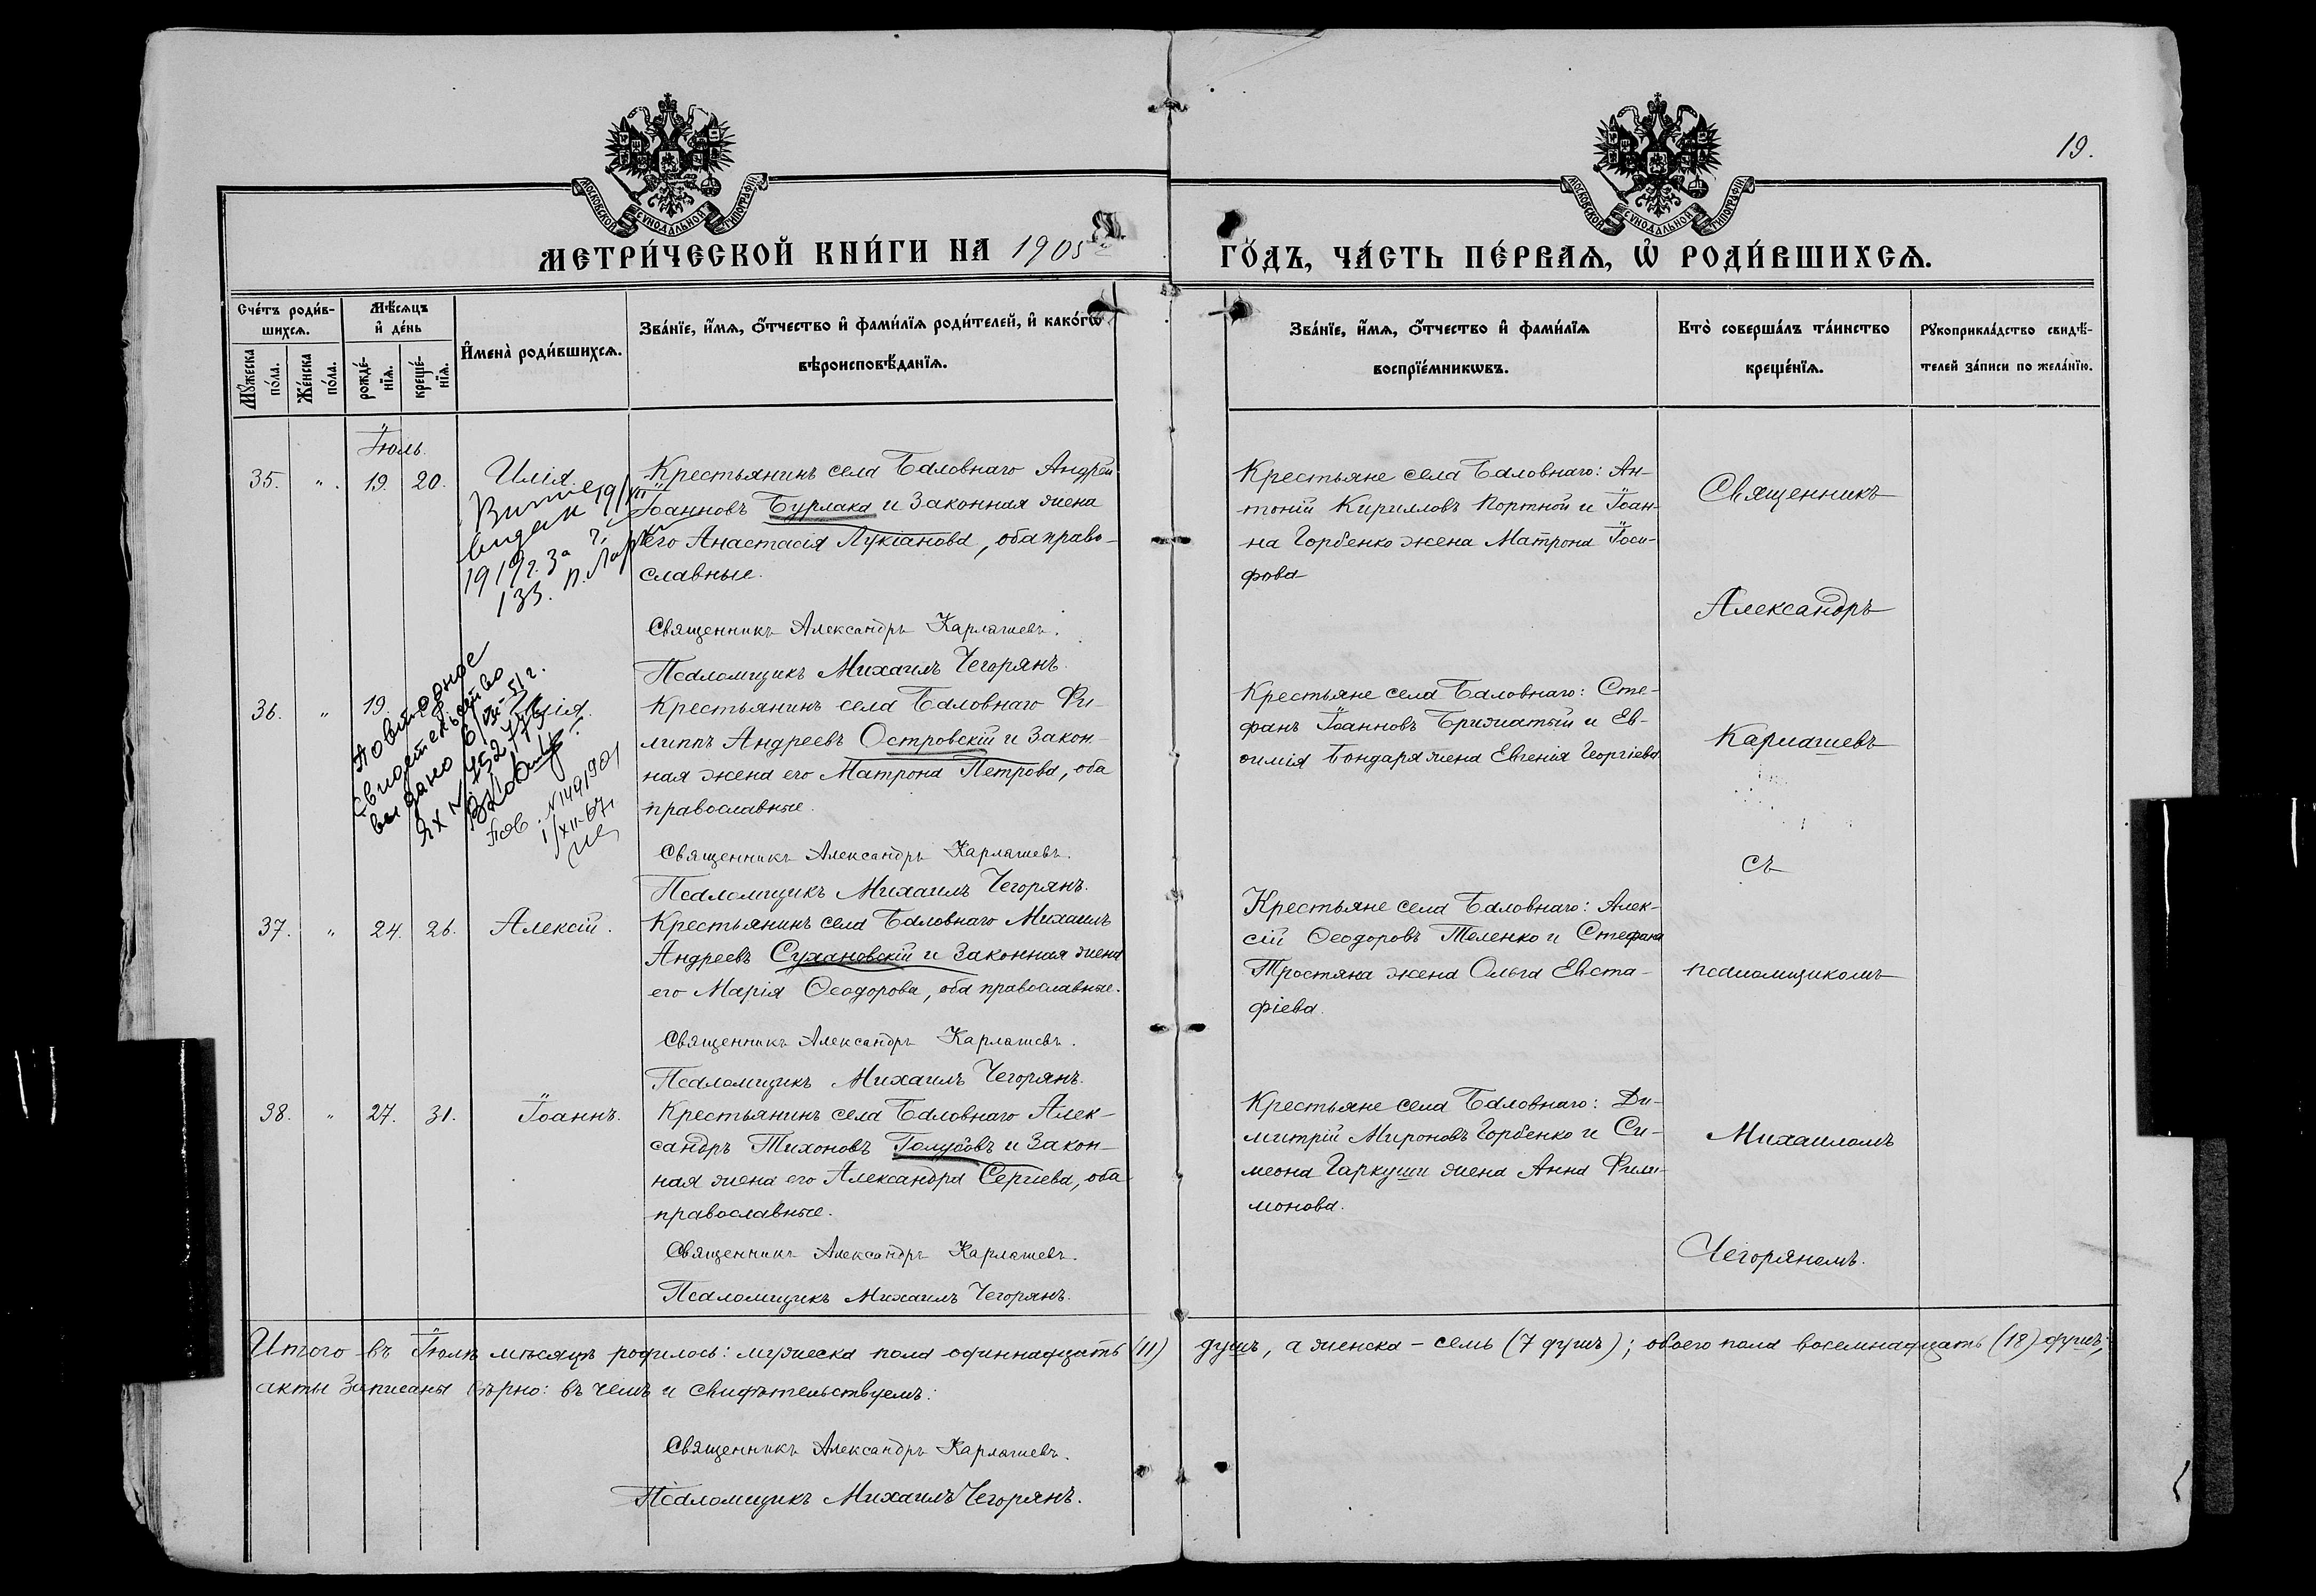 19.
МОСКОВСКОЙ СѴНОДАЛЬНОЙ ТИПОГРАФІИ.
МОСКОВСКОЙ СѴНОДАЛЬНОЙ ТИПОГРАФІИ.
МЕТРИ́ЧЕСКОЙ КНИ́ГИ НА 1905
ГО́ДЪ, ЧА́СТЬ ПЕ́РВАѦ, Ѡ҆ РОДИ́ВШИХСѦ.
Сче́тъ роди́в-
шихсѧ.
Мꙋ́жеска
по́ла.
Же́нска
по́ла.
Мѣ́сѧцъ
и҆ де́нь
рожде́-
нїѧ.
креще́-
нїѧ.
И҆мена̀ роди́вшихсѧ.
Зва́нїе, и҆́мѧ, ѻ҆́тчество и҆ фами́лїѧ роди́телей, и҆ како́гѡ
вѣроисповѣ́данїѧ.
Зва́нїе, и҆́мѧ, ѻ҆́тчество и҆ фами́лїѧ
воспрїе́мникѡвъ.
Кто̀ соверша́лъ та́инство
креще́нїѧ.
Рꙋкоприкла́дство свидѣ́-
телей за́писи по жела́нїю.
Іюль.
35. " 19. 20. Илія.
Крестьянинъ села Баловнаго Андрей
Іоанновъ Бурлака и законная жена
его Анастасія Лукіанова, оба право-
славные.
Священникъ Александръ Карлашевъ.
Псаломщикъ Михаилъ Чегорянъ.
Витяг
видан
1919 г. За ч.
133.
Крестьяне села Баловнаго: Ан-
тоній Кирилловъ Портной и Іоан-
на Горбенко жена Матрона Іоси-
фова
36. " 19. Илія.
Повторное
свидетельство
выдано
Крестьянинъ села Баловнаго Фи-
липпъ Андреевъ Островскій и закон-
ная жена его Матрона Петрова, оба
православные.
Священникъ Александръ Карлашевъ.
Псаломщикъ Михаилъ Чегорянъ.
Крестьяне села Баловнаго: Сте-
фанъ Іоанновъ Брижатый и Ев-
ѳимія Бондаря жена Евгенія Георгіева
37. " 24. 26. Алексій.
Крестьянинъ села Баловнаго Михаилъ
Андреевъ Сухановскій и законная жена
его Марія Ѳеодорова, оба православные.
Священникъ Александръ Карлашевъ.
Псаломщикъ Михаилъ Чегорянъ.
Крестьяне села Баловнаго: Алек-
сій Ѳеодоровъ Теленко и Стефана
Тростяна жена Ольга Евста-
фіева.
38. " 27. 31. Іоаннъ.
Крестьянинъ села Баловнаго Алек-
сандръ Тихоновъ Голубовъ и закон-
ная жена его Александра Сергіева, оба
православные.
Священникъ Александръ Карлашевъ.
Псаломщикъ Михаилъ Чегорянъ.
Крестьяне села Баловнаго: Ди-
митрій Мироновъ Горбенко и Си-
меона Гаркуши жена Анна Фили-
монова.
Священникъ
Александръ
Карлашевъ
съ
псаломщикомъ
Михаиломъ
Чегоряномъ.
Итого въ Іюлѣ мѣсяцѣ родилось: мужеска пола одиннадцать (11) душъ, а женска – семь (7 душъ); обоего пола восемнадцать (18) душъ;
акты записаны вѣрно: въ чемъ и свидѣтельствуемъ:
Священникъ Александръ Карлашевъ.
Псаломщикъ Михаилъ Чегорянъ.